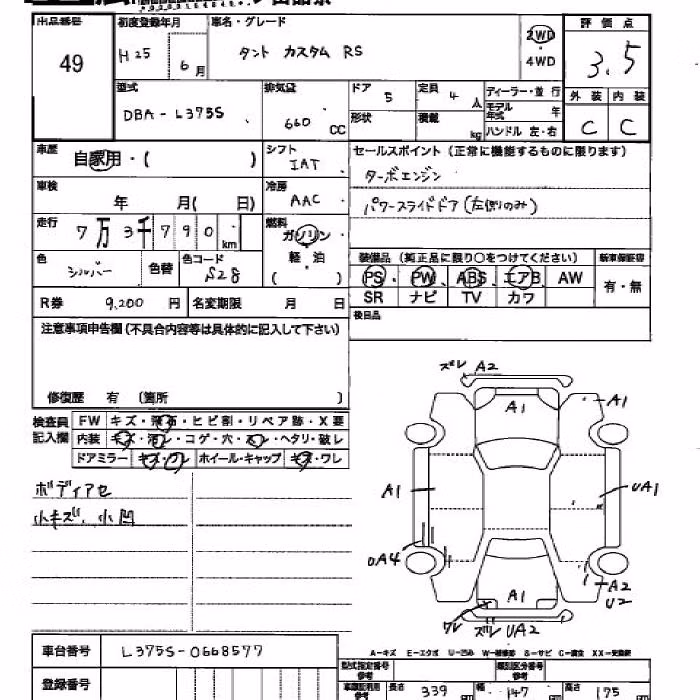 出品番号 初度登録年月 車名・グレード 評価点
49 H25 6月 タント カスタム RS 2WD 3.5
4WD
型式 排気量 ドア 5 定員 4人 ディーラー・並行 外装 内装
DBA-L375S 660 CC 形状 積載 kg モデル年式 年 C C
ハンドル 左・右
車歴 自家用・( ) シフト IAT セールスポイント(正常に機能するものに限ります)
ターボエンジン
車検 年 月( 日) 冷房 AAC パワースライドドア(左側のみ)
走行 7万3千790km 燃料 ガソリン
軽・油
( )
色 シルバー 色替 色コード S28 装備品(純正品に限り○をつけてください) 新車保証書
PS PW ABS エアB AW 有・無
R券 9,200円 名変期限 月 日 SR ナビ TV カワ
注意事項申告欄(不具合内容等は具体的に記入して下さい) 後日品
修復歴 有 (箇所 )
検査員記入欄 FW キズ・飛石・ヒビ割・リペア跡・X要
内装 キズ・汚レ・コゲ・穴・スレ・ヘタリ・破レ
ドアミラー キズ・ワレ ホイール・キャップ キズ・ワレ
ボディアセ
小キズ、小凹
ズレ A2
A1 A1
A1 UA1
UA4
A1 A2
U2
ワレ ズレ UA2
A-キズ E-エクボ U-凹み
車台番号 L375S-0668577
型式指定番号 類別区分番号
登録番号 長さ 339 cm 幅 147 cm 高さ 175